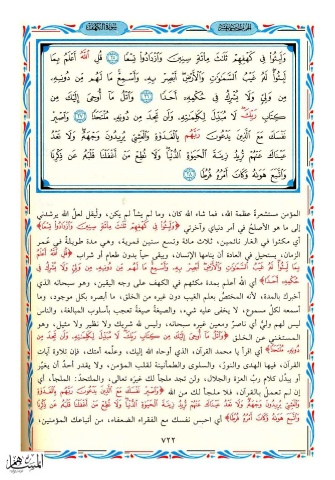 سورة الكهف
وَلَبِثُوا۟ فِى كَهْفِهِمْ ثَلَٰثَ مِا۟ئَةٍ سِنِينَ وَٱزْدَادُوا۟ تِسْعًا ﴿٢٥﴾ قُلِ ٱللَّهُ أَعْلَمُ بِمَا
لَبِثُوا۟ لَهُۥ غَيْبُ ٱلسَّمَٰوَٰتِ وَٱلْأَرْضِ أَبْصِرْ بِهِۦ وَأَسْمِعْ مَا لَهُم مِّن دُونِهِۦ
مِن وَلِىٍّ وَلَا يُشْرِكُ فِى حُكْمِهِۦٓ أَحَدًا ﴿٢٦﴾ وَٱتْلُ مَآ أُوحِىَ إِلَيْكَ مِن
كِتَابِ رَبِّكَ لَا مُبَدِّلَ لِكَلِمَٰتِهِۦ وَلَن تَجِدَ مِن دُونِهِۦ مُلْتَحَدًا ﴿٢٧﴾ وَٱصْبِرْ
نَفْسَكَ مَعَ ٱلَّذِينَ يَدْعُونَ رَبَّهُم بِٱلْغَدَوٰةِ وَٱلْعَشِىِّ يُرِيدُونَ وَجْهَهُۥ وَلَا تَعْدُ
عَيْنَاكَ عَنْهُمْ تُرِيدُ زِينَةَ ٱلْحَيَوٰةِ ٱلدُّنْيَا وَلَا تُطِعْ مَنْ أَغْفَلْنَا قَلْبَهُۥ عَن ذِكْرِنَا
وَٱتَّبَعَ هَوَىٰهُ وَكَانَ أَمْرُهُۥ فُرُطًا ﴿٢٨﴾
المؤمن مستشعرة عظمة الله، فما شاء الله كان، وما لم يشأ لم يكن، وليقل لعل الله يرشدني
إلى ما هو الأصلح في أمر دنياي وآخرتي ﴿وَلَبِثُوا۟ فِى كَهْفِهِمْ ثَلَٰثَ مِا۟ئَةٍ سِنِينَ وَٱزْدَادُوا۟ تِسْعًا﴾
أي مكثوا في الغار نائمين، ثلاث مائة وتسع سنين قمرية، وهي مدة طويلة في عمر
الزمان، يستحيل في العادة أن ينامها الإنسان، ويبقى حياً بدون طعام أو شراب ﴿قُلِ ٱللَّهُ أَعْلَمُ
بِمَا لَبِثُوا۟ لَهُۥ غَيْبُ ٱلسَّمَٰوَٰتِ وَٱلْأَرْضِ أَبْصِرْ بِهِۦ وَأَسْمِعْ مَا لَهُم مِّن دُونِهِۦ مِن وَلِىٍّ وَلَا يُشْرِكُ فِى
حُكْمِهِۦٓ أَحَدًا﴾ أي الله أعلم بمدة مكثهم في الكهف على وجه اليقين، وهو سبحانه الذي
أخبرك بالمدة، لأنه المختص بعلم الغيب دون غيره من الخلق، ما أبصره بكل موجود، وما
أسمعه لكل مسموع، لا يخفى عليه شيء، والصيغة صيغة تعجب بأسلوب المبالغة، والناس
ليس لهم ولي أي ناصر ومعين غيره سبحانه، وليس له شريك ولا نظير ولا مثيل، وهو
المستغني عن الخلق ﴿وَٱتْلُ مَآ أُوحِىَ إِلَيْكَ مِن كِتَابِ رَبِّكَ لَا مُبَدِّلَ لِكَلِمَٰتِهِۦ وَلَن تَجِدَ مِن
دُونِهِۦ مُلْتَحَدًا﴾ أي اقرأ يا محمد القرآن، الذي أوحاه الله إليك، وعلمه أمتك، فإن تلاوة آيات
القرآن، فيها الهدى والنور، والسلوى والطمأنينة لقلب المؤمن، ولا يقدر أحد أن يغير
أو يبدل كلام رب العزة والجلال، ولن تجد ملجأ لك غيره تعالى، والملتحد: الملجأ، أي
إن لم تعمل بالقرآن، فلا ملجأ لك من الله ﴿وَٱصْبِرْ نَفْسَكَ مَعَ ٱلَّذِينَ يَدْعُونَ رَبَّهُم بِٱلْغَدَوٰةِ
وَٱلْعَشِىِّ يُرِيدُونَ وَجْهَهُۥ وَلَا تَعْدُ عَيْنَاكَ عَنْهُمْ تُرِيدُ زِينَةَ ٱلْحَيَوٰةِ ٱلدُّنْيَا وَلَا تُطِعْ مَنْ أَغْفَلْنَا قَلْبَهُۥ عَن ذِكْرِنَا
وَٱتَّبَعَ هَوَىٰهُ وَكَانَ أَمْرُهُۥ فُرُطًا﴾ أي احبس نفسك مع الفقراء الضعفاء، من أتباعك المؤمنين،
٧٢٢